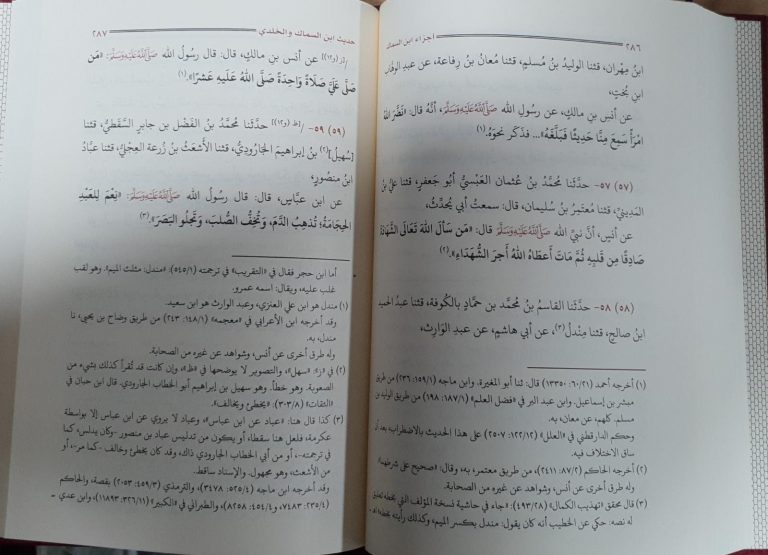 ٢٨٦ أجزاء ابن السماك
ابنُ مِهْران، قثنا الوليدُ بنُ مُسلمٍ، قثنا مُعانُ بنُ رِفاعة، عن عبدِ الوهّابِ
ابنِ بُختٍ،
عن أنسِ بنِ مالكٍ، عن رسولِ الله ﷺ أنَّهُ قال: «نَضَّرَ اللهُ
امرَأً سَمِعَ مِنَّا حَديثًا فَبَلَّغَهُ»... فذكَر نحوَهُ.(١)
(٥٧) ٥٧- حدَّثَنا محمَّدُ بنُ عُثمانَ العَبْسِيُّ أبُو جَعفرٍ، قثنا عليُّ بنُ
المَدِينيِّ، قثنا مُعتَمِرُ بنُ سُليمان، قال: سمعتُ أبي يُحدِّثُ،
عن أنسٍ، أنَّ نبيَّ الله ﷺ قال: «مَن سَألَ اللهَ تَعالَى الشَّهادَةَ
صَادِقًا مِن قَلبِهِ ثُمَّ مَاتَ أعطَاهُ اللهُ أجرَ الشُّهَدَاءِ».(٢)
(٥٨) ٥٨- حدَّثَنا القاسمُ بنُ مُحمَّد بنِ حمَّادٍ بالكُوفة، قثنا عبدُ الحميدِ
ابنُ صالحٍ، قثنا مِندلُ(٣)، عن أبي هاشمٍ، عن عبدِ الوَارِثِ،
(١) أخرجه أحمد (٢١/ ٦٠: ١٣٣٥٠) قال: ثنا أبو المغيرة. وابن ماجه (١/ ١٥٩: ٢٣٦) من طريق
مبشر بن إسماعيل. وابن عبد البر في «فضل العلم» (١/ ١٨٧: ١٩٨) من طريق الوليد بن
مسلم. كلهم، عن معان، به.
وحكم الدارقطني في «العلل» (١٢/ ١٢٢: ٢٥٠٧) على هذا الحديث بالاضطراب، بعد أن
ساق الاختلاف فيه.
(٢) أخرجه الحاكم (٢/ ٨٧: ٢٤١١)، من طريق معتمر به، وقال: «صحيح على شرطهما»
وله طرق أخرى عن أنس، وشواهد عن غيره من الصحابة.
(٣) قال محقق «تهذيب الكمال» (٢٨/ ٤٩٣): «جاء في حاشية نسخة المؤلف التي بخطه تعليق
له نصه: حكي عن الخطيب أنه كان يقول: مندل بكسر الميم، وكذلك رأيته بخطه» اهـ.
حديث ابن السماك والخلدي ٢٨٧
عن أنسِ بنِ مالكٍ، قال: قال رسُولُ الله ﷺ: «مَن
صَلَّى عَلَيَّ صَلَاةً وَاحِدَةً صَلَّى اللهُ عَلَيهِ عَشرًا».(١)
(٥٩) ٥٩- /[ظ (و١٢)] حدَّثَنا مُحمَّدُ بنُ الفَضْل بنِ جابرٍ السَّقَطيُّ، قثنا
[سُهيلُ](٢) بنُ إبراهيمَ الجَارُوديُّ، قثنا الأشعَثُ بنُ زُرعة العِجْليُّ، قثنا عبَّادُ
ابنُ منصُورٍ،
عن ابنِ عبَّاسٍ، قال: قال رسُول الله ﷺ: «نِعمَ لِلعَبدِ
الحِجامَةُ؛ تُذهِبُ الدَّمَ، وَتُخِفُّ الصُّلبَ، وَتَجلُو البَصَرَ».(٣)
أما ابن حجر فقال في «التقريب» في ترجمته (١/ ٥٤٥): «مندل: مثلث الميم». وهو لقب
غلب عليه، ويقال: اسمه عمرو.
(١) مندل هو ابن علي العنزي، وعبد الوارث هو ابن سعيد.
وقد أخرجه ابن الأعرابي في «معجمه» (١/ ١٤٨: ٢٤٣) من طريق وضاح بن يحيى، نا
مندل، به.
وله طرق أخرى عن أنس، وشواهد عن غيره من الصحابة.
(٢) في «ز»: «سهل»، والتصوير لا يوضحها في «ظ»، وإن كانت قد تُقرأ كذلك بشيء من
الصعوبة. وهو خطأ. وهو سهيل بن إبراهيم أبو الخطاب الجارودي. قال ابن حبان في
«الثقات» (٨/ ٣٠٣): «يخطئ ويخالف».
(٣) كذا قال هنا: «عباد عن ابن عباس»، وعباد لا يروي عن ابن عباس إلا بواسطة
عكرمة، فلعل هنا سقطا، أو يكون من تدليس عباد بن منصور -وكان يدلس، كما
في ترجمته-، أو من أبي الخطاب الجارودي ذاك، وقد كان يخطئ وخالف -كما مر-، أو
من الأشعث، وهو مجهول. والإسناد ساقط.
وقد أخرجه ابن ماجه (٤/ ٥٢٥: ٣٤٧٨)، والترمذي (٣/ ٤٥٩: ٢٠٥٣) بقصة، والحاكم
(٤/ ٢٣٥: ٧٤٨٣، ٤/ ٤٥٤: ٨٢٥٨)، والطبراني في «الكبير» (١١/ ٣٢٦: ١١٨٩٣)، وابن عدي -